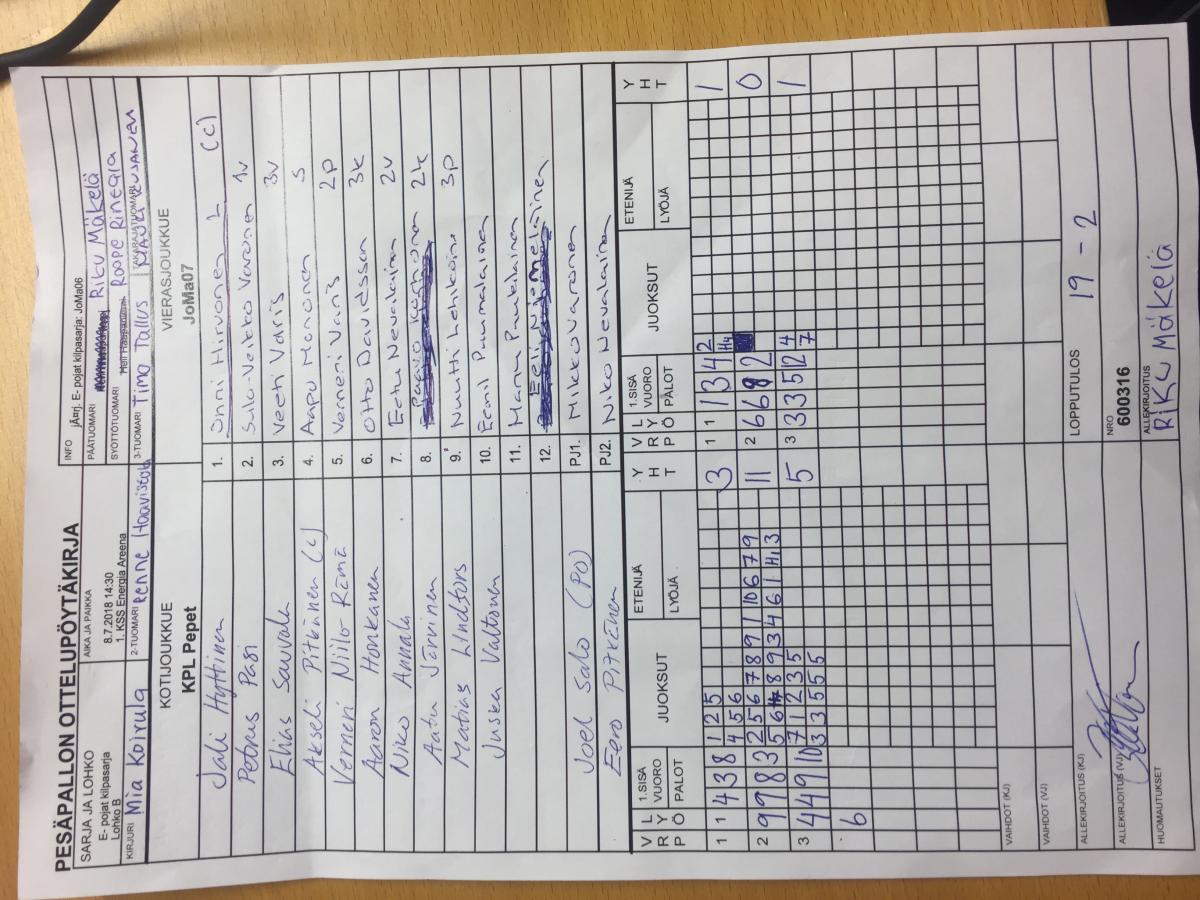 PESÄPALLON OTTELUPÖYTÄKIRJA
SARJA JA LOHKO
E- pojat kilpasarja
Lohko B
AIKA JA PAIKKA
8.7.2018 14:30
1. KSS Energia Areena
INFO
jÄ¤rj. E- pojat kilpasarja: JoMa06
PÄÄTUOMARI Riku Mäkelä
SYÖTTÖTUOMARI Roope Rinegla
KIRJURI Mia Koirula
2-TUOMARI Renne Haavistola
3-TUOMARI Timo Tallus
TAKARAJATUOMARI
KOTIJOUKKUE
KPL Pepet
VIERASJOUKKUE
JoMa07
Jali Hyttinen 1. Onni Hirvonen L (c)
Petrus Pasi 2. Sulo-Veikko Varonen 1v
Elias Sauvala 3. Veeti Varis 3v
Akseli Pitkänen (c) 4. Aapo Mononen S
Verneri Niilo Rämä 5. Verneri Varis 2p
Aaron Honkanen 6. Otto Davidsson 3k
Niko Annala 7. Eetu Nevalainen 2v
Aatu Järvinen 8. Paavo Korhonen 2k
Matias Lindfors 9. Nuutti Lehikoine 3p
Juska Valtonen 10. Eemil Puumalainen
11. Manu Puukilainen
12. Eeli Niemeläinen
Joel Salo (PO) PJ1. Mikko Varonen
Eero Pitkänen PJ2. Niko Nevalainen
V R P L Y Ö 1.SISÄ VUORO PALOT JUOKSUT ETENIJÄ LYÖJÄ Y H T V R P L Y Ö 1.SISÄ VUORO PALOT JUOKSUT ETENIJÄ LYÖJÄ Y H T
1 1 4 3 8 1 2 5 3 1 1 1 3 4 2 1
4 5 6 H4
2 9 9 8 3 2 5 6 7 8 9 1 10 6 7 9 11 2 6 6 8 2 0
8 9 3 4 6 1 H1 3
3 4 4 9 10 7 1 2 3 5 5 3 3 3 5 12 4 1
3 3 5 5 5 7
6
VAIHDOT (KJ)
VAIHDOT (VJ)
ALLEKIRJOITUS (KJ)
LOPPUTULOS 19 - 2
ALLEKIRJOITUS (VJ)
NRO
600316
HUOMAUTUKSET
ALLEKIRJOITUS
RIKU MÄKELÄ